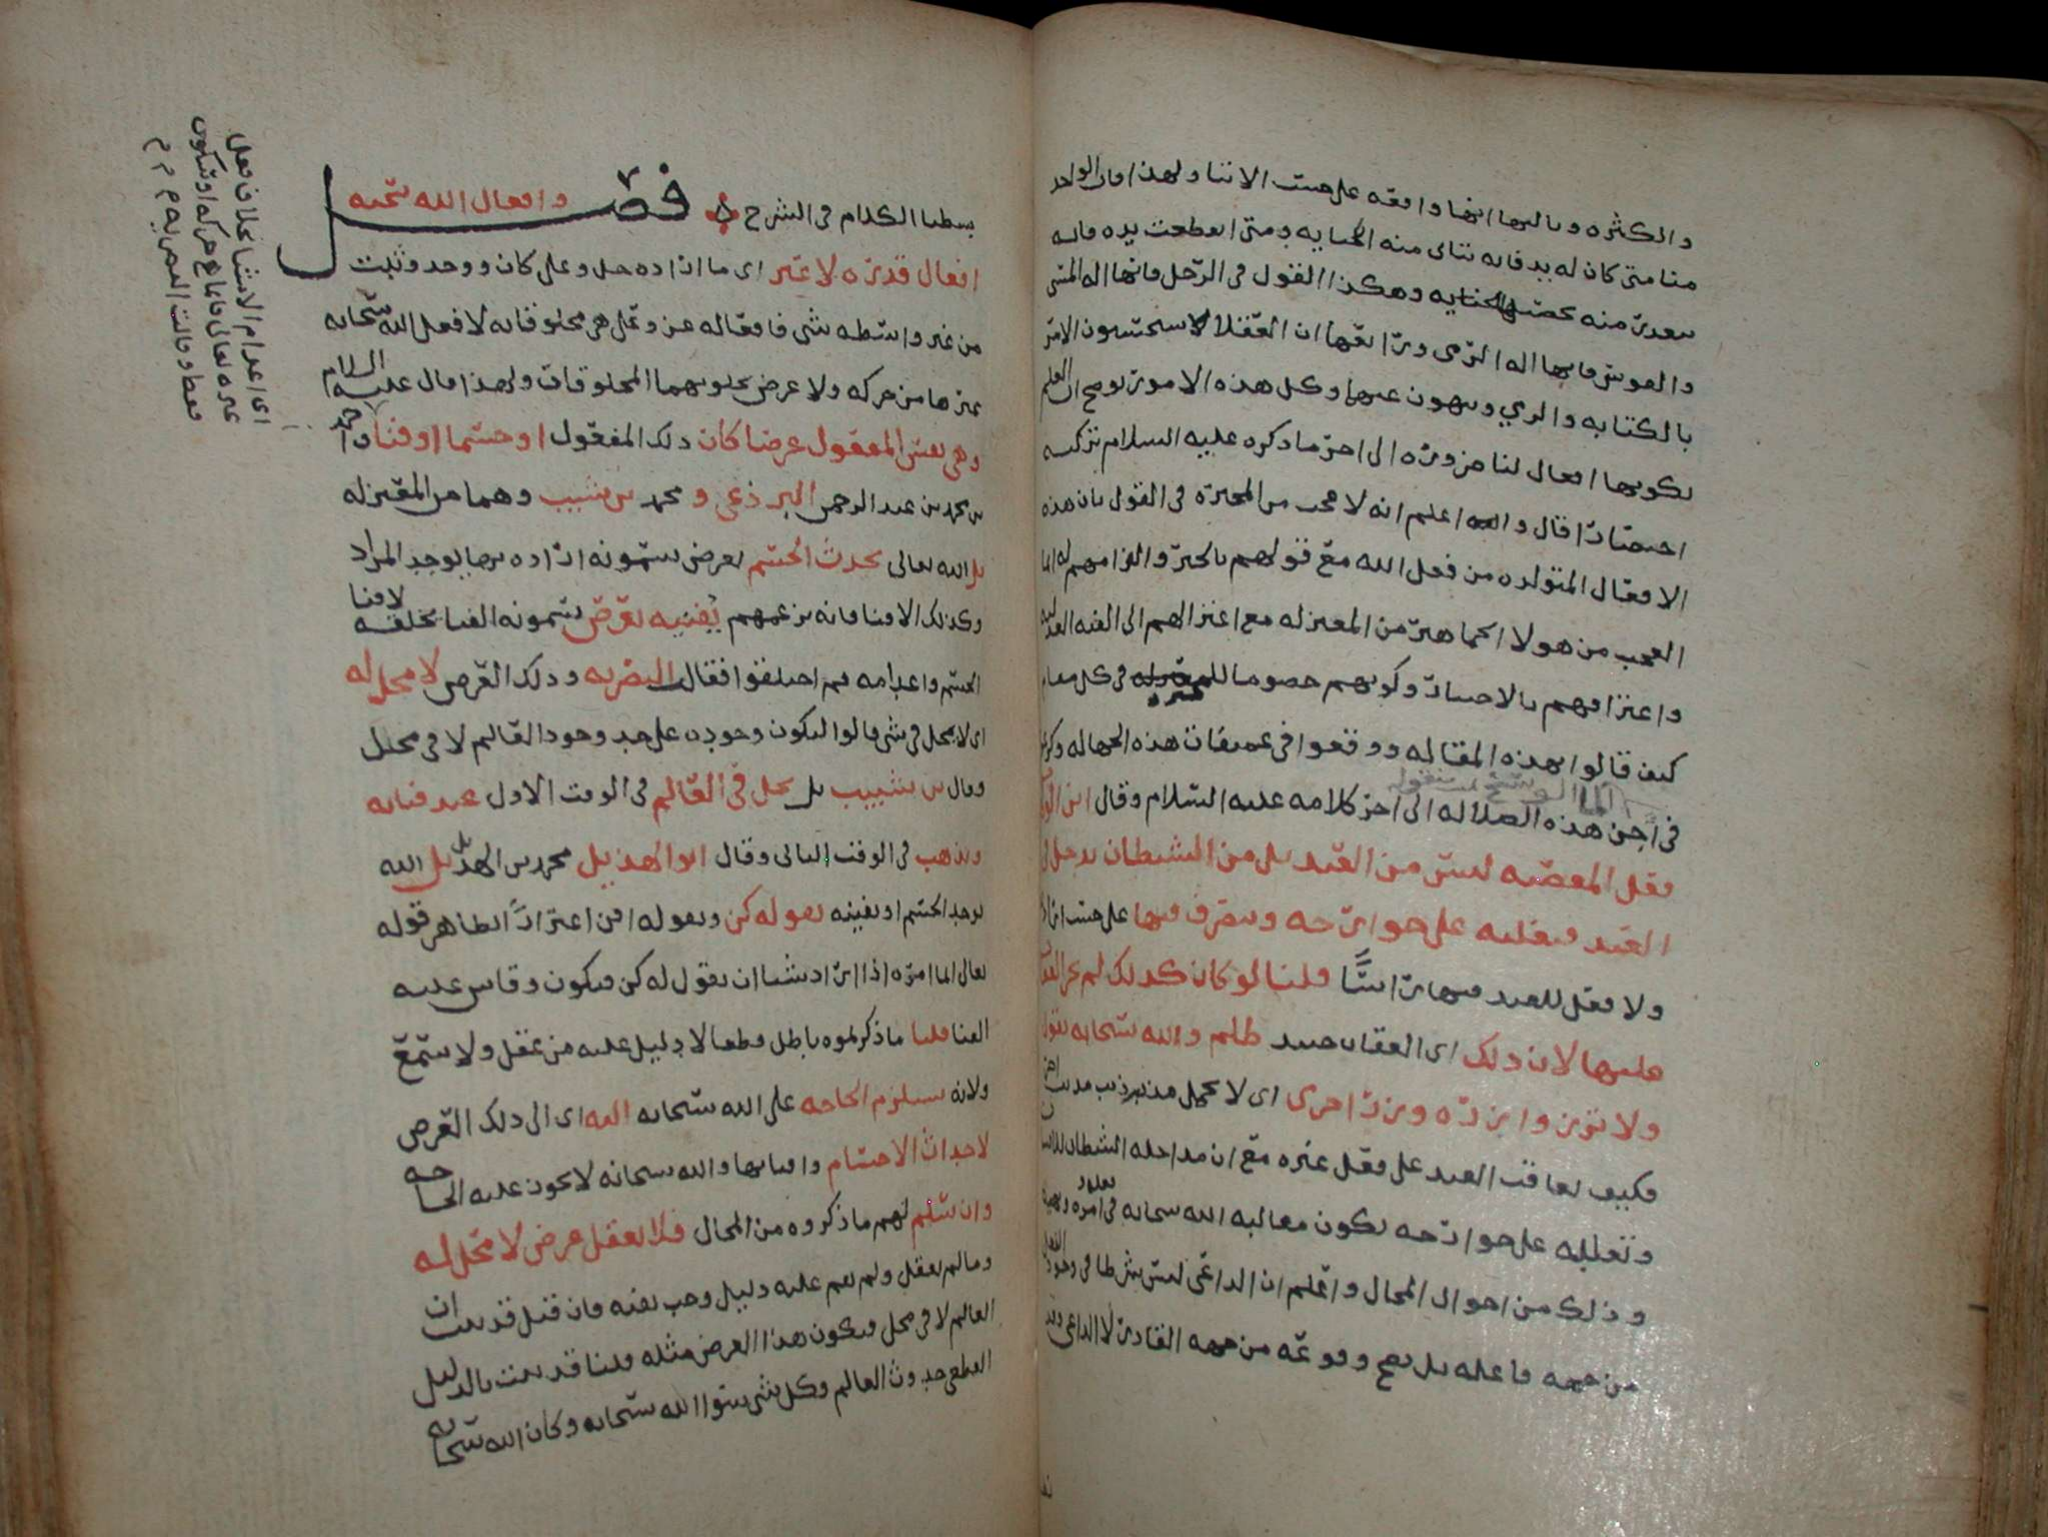 والكثره وبالها انها واقعه على حسب الاتنا ولهذا فان الواحد
منا متى كان له يد فانه يتاتى منه الكتابه ومتى انقطعت يده فانه
يتعذر منه وهكذا القول فى الرجل فانها اله المشى
والقوس فانها اله الرمى ورابعها ان العقلا يستحسنون الامر
بالكتابه والرمي وينهون عنها وكل هذه الامور توضح لك العلم
بكونها افعال لنا ضروره الى اخر ما ذكره عليه السلام تركته
اختصارا قال واعلم انه لا عجب من المجبره فى القول بان هذه
الافعال المتولده من فعل الله مع قولهم بالجبر والزامهم له انما
العجب من هولا الجماهير من المعتزله مع اعتزالهم الى الفئه العدليه
واعترافهم بالاختيار وكونهم خصوما للمجبره فى كل مقام
كيف قالوا بهذه المقاله ووقعوا فى عميقات هذه الجهاله
فى هذه الضلاله الى اخر كلامه عليه السلام وقال ابن
فعل المعصيه ليس من العبد بل من الشيطان يدخل فى
العبد فيغلبه على جوارحه ويتصرف فيها على حسب
ولا فعل للعبد فيها راسًا قلنا لو كان كذلك لم يجز العقاب
عليها لان ذلك اى العقاب حينيد ظلم والله سبحانه يقول
ولا تزر وازره وزر اخرى اى لا تحمل مذنب مذنب اخر
فكيف يعاقب العبد على فعل غيره مع ان مداخله الشيطان للانسان
وتغلبه على جوارحه يكون مغالبه الله سبحانه فى امره
وذلك من احوال المحال واعلم ان الداعى ليس بشرط فى وجود الفعل
من جهه فاعله بل يصح وقوعه من جهه القادر لا الداعى
بسطنا الكلام فى الشرح
فصل
وافعال الله سبحنه
افعال قدره لا غير اى ما اراده جل وعلى كان ووجد وثبت
من غير واسطه شى فافعاله عز وعلى هى مخلوقاته لا فعل الله سبحانه
غيرها من حركه ولا عرض يخلق بهما المخلوقات ولهذا قال عليه السلام
وهى نفس المفعول عرضا كان ذلك المفعول او جسما او فنا واحمد
بن محمد بن عبد الرحمن البرذعى ومحمد بن شبيب وهما من المعتزله
بل الله تعالى يحدث الجسم بعرض يسمونه اراده بها يوجد المراد
وكذلك الافنا فانه بزعمهم يُفنيه بعرض يسمونه الفنا يخلقه لافنا
الجسم واعدامه ثم اختلفوا فقالت البصريه وذلك العرض لا محل له
اى لا يحل فى شى قالوا ليكون وجوده على حد وجود العالم لا فى محل
وقال بن شبيب بل يحل فى العالم فى الوقت الاول عند فنايه
ويذهب فى الوقت الثانى وقال ابو الهذيل محمد بن الهذيل بل الله
يوجد الجسم او يفنيه بقوله كن وبقوله افن اعترارًا بظاهر قوله
تعالى انما امره اذا اراد شيا ان يقول له كن فيكون وقاس عليه
الفنا قلنا ما ذكرتموه باطل قطعا لا دليل عليه من عقل ولا سمع
ولانه يستلزم الحاجه على الله سبحانه اليه اى الى ذلك العرض
لاحداث الاجسام وافنائها والله سبحانه لا يجوز عليه الحاجه
وان سلم لهم ما ذكروه من المحال فلا يعقل عرض لا محل له
وما لم يعقل ولم يقم عليه دليل وجب نفيه فان قيل قد ثبت ان
العالم لا فى محل فيكون هذا العرض مثله قلنا قد ثبت بالدليل
القطعى حدوث العالم وكل شى سوا الله سبحانه وكان الله سبحانه
اى اعدام الاشيا بخلاف فعل
غيره تعالى فانما هو حركه او سكون
فقط وقالت البصريه